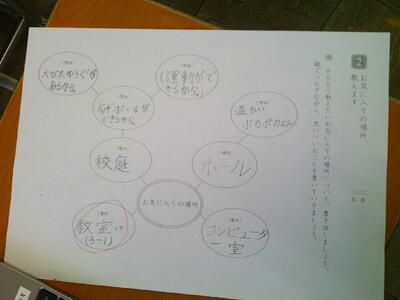 2 お気に入りの場所、
教えます
年 組
名
みんなに教えたいお気に入りの場所について、書き出しましょう。
線でつなぎながら、思いついたことを書いていきましょう。
(理由)
大がたゆうぐが
あるから。
(理由)
運動がで
きるから。
(理由)
ボールが
できるから。
(理由)
温かい
ポカポカ
(場所)
校庭
(場所)
ホール
お気に入りの場所
(場所)
教室
(3-1)
(場所)
コンピュータ
ー室